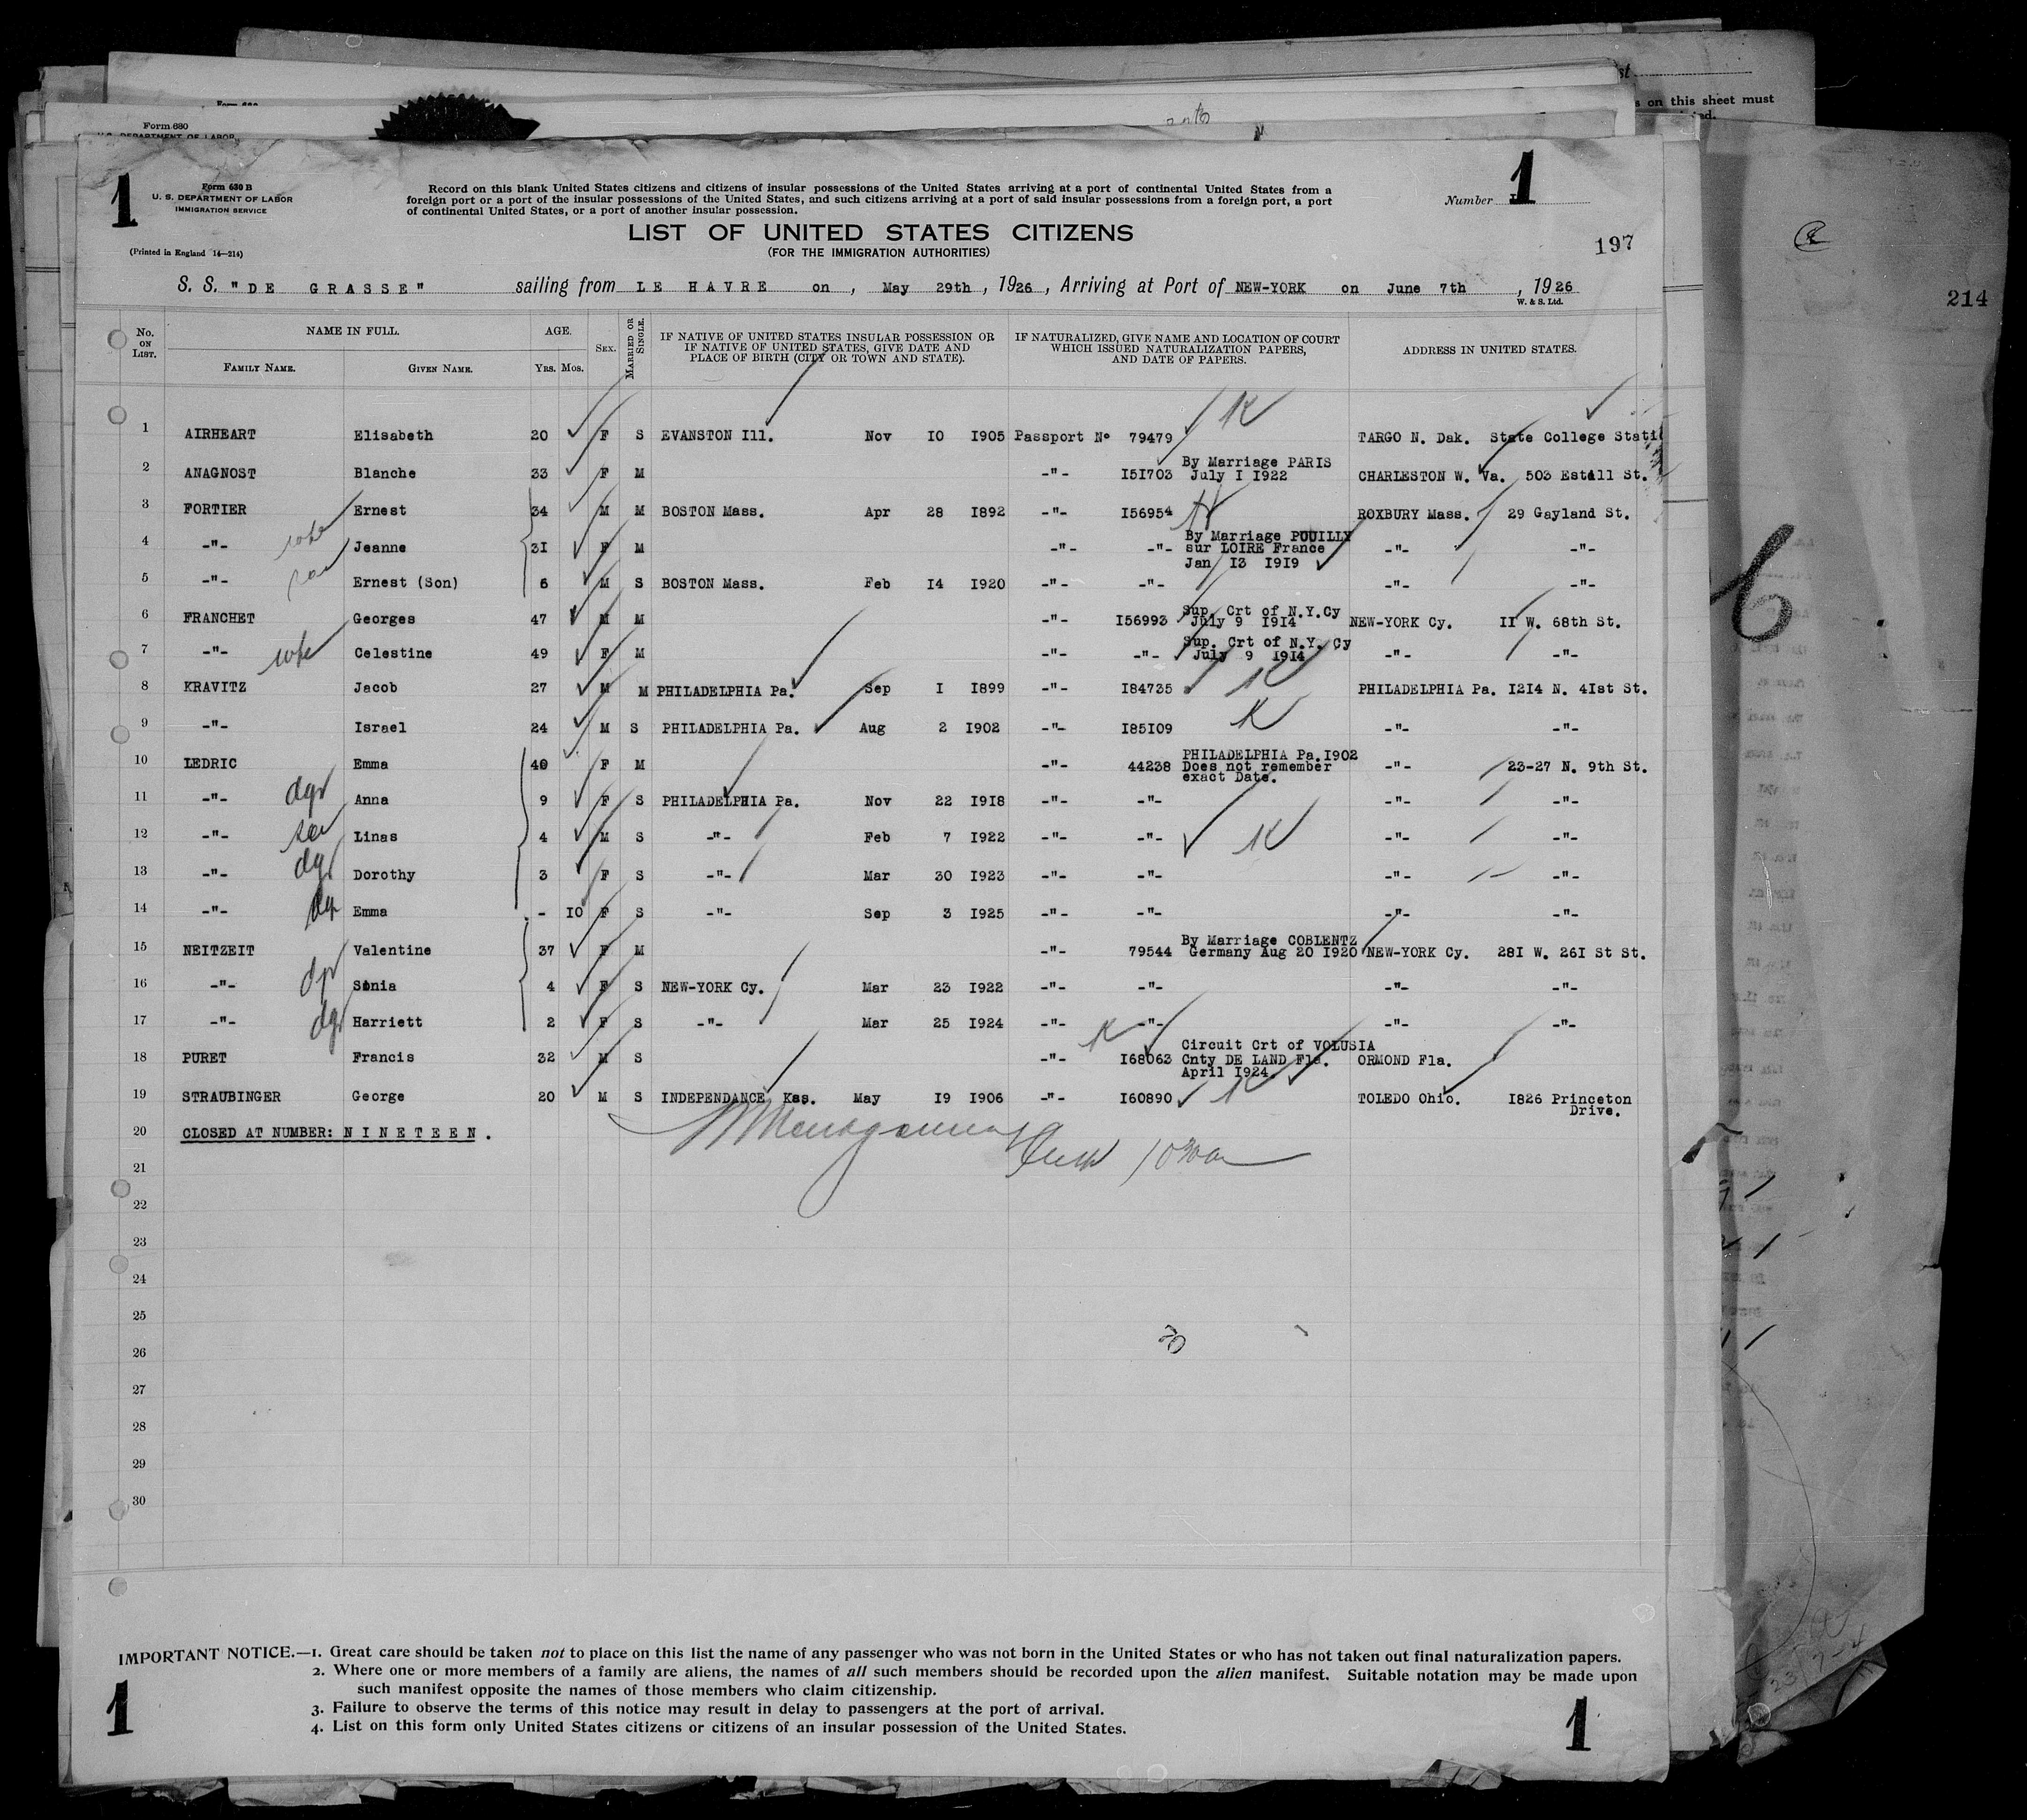 Form 680
on this sheet must
1
Form 630 B
U. S. DEPARTMENT OF LABOR
IMMIGRATION SERVICE
(Printed in England 14—214)
Record on this blank United States citizens and citizens of insular possessions of the United States arriving at a port of continental United States from a
foreign port or a port of the insular possessions of the United States, and such citizens arriving at a port of said insular possessions from a foreign port, a port
of continental United States, or a port of another insular possession.
Number 1
LIST OF UNITED STATES CITIZENS
(FOR THE IMMIGRATION AUTHORITIES)
197
214
S. S. "DE GRASSE" sailing from LE HAVRE on , May 29th , 1926 , Arriving at Port of NEW-YORK on June 7th , 1926
W. & S. Ltd.
No. ON LIST. NAME IN FULL. AGE. SEX. MARRIED OR SINGLE. IF NATIVE OF UNITED STATES INSULAR POSSESSION OR IF NATIVE OF UNITED STATES, GIVE DATE AND PLACE OF BIRTH (CITY OR TOWN AND STATE). IF NATURALIZED, GIVE NAME AND LOCATION OF COURT WHICH ISSUED NATURALIZATION PAPERS, AND DATE OF PAPERS. ADDRESS IN UNITED STATES.
FAMILY NAME. GIVEN NAME. YRS. MOS.
1 AIRHEART Elisabeth 20 F S EVANSTON Ill. Nov 10 1905 Passport N° 79479 TARGO N. Dak. State College Stati
2 ANAGNOST Blanche 33 F M -"- 151703 By Marriage PARIS July 1 1922 CHARLESTON W. Va. 503 Estill St.
3 FORTIER Ernest 34 M M BOSTON Mass. Apr 28 1892 -"- 156954 ROXBURY Mass. 29 Gayland St.
4 -"- wife Jeanne 31 F M -"- -"- By Marriage POUILLY sur LOIRE France Jan 13 1919 -"- -"-
5 -"- son Ernest (Son) 6 M S BOSTON Mass. Feb 14 1920 -"- -"- -"- -"-
6 FRANCHET Georges 47 M M -"- 156993 Sup. Crt of N.Y.Cy July 9 1914 NEW-YORK Cy. 11 W. 68th St.
7 -"- wife Celestine 49 F M -"- -"- Sup. Crt of N.Y. Cy July 9 1914 -"- -"-
8 KRAVITZ Jacob 27 M M PHILADELPHIA Pa. Sep 1 1899 -"- 184735 PHILADELPHIA Pa. 1214 N. 41st St.
9 -"- Israel 24 M S PHILADELPHIA Pa. Aug 2 1902 -"- 185109 -"- -"-
10 LEDRIC Emma 40 F M -"- 44238 PHILADELPHIA Pa.1902 Does not remember exact Date. -"- 23-27 N. 9th St.
11 -"- dgr Anna 9 F S PHILADELPHIA Pa. Nov 22 1918 -"- -"- -"- -"-
12 -"- son Linas 4 M S -"- Feb 7 1922 -"- -"- -"- -"-
13 -"- dgr Dorothy 3 F S -"- Mar 30 1923 -"- -"- -"- -"-
14 -"- dgr Emma - 10 F S -"- Sep 3 1925 -"- -"- -"- -"-
15 NEITZEIT Valentine 37 F M -"- 79544 By Marriage COBLENTZ Germany Aug 20 1920 NEW-YORK Cy. 281 W. 261 St St.
16 -"- dgr Sonia 4 F S NEW-YORK Cy. Mar 23 1922 -"- -"- -"- -"-
17 -"- dgr Harriett 2 F S -"- Mar 25 1924 -"- -"- -"- -"-
18 PURET Francis 32 M S -"- 168063 Circuit Crt of VOLUSIA Cnty DE LAND Fla. April 1924. ORMOND Fla.
19 STRAUBINGER George 20 M S INDEPENDANCE Kas. May 19 1906 -"- 160890 TOLEDO Ohio. 1826 Princeton Drive.
20 CLOSED AT NUMBER: NINETEEN.
21
22
23
24
25
26
27
28
29
30
IMPORTANT NOTICE.—1. Great care should be taken not to place on this list the name of any passenger who was not born in the United States or who has not taken out final naturalization papers.
2. Where one or more members of a family are aliens, the names of all such members should be recorded upon the alien manifest. Suitable notation may be made upon
such manifest opposite the names of those members who claim citizenship.
3. Failure to observe the terms of this notice may result in delay to passengers at the port of arrival.
4. List on this form only United States citizens or citizens of an insular possession of the United States.
1
1